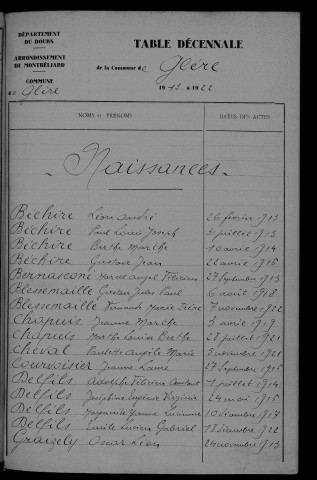 DÉPARTEMENT
DU DOUBS
ARRONDISSEMENT
DE MONTBÉLIARD
COMMUNE
de Glère
TABLE DÉCENNALE
de la Commune de Glère
1913 à 1922
NOMS et PRÉNOMS DATES DES ACTES
Naissances
Béchire Léon André 26 février 1913
Béchire Paul Louis Joseph juillet 1913
Béchire Berthe Marthe 10 avril 1914
Béchire Gustave Jean 22 avril 1915
Bernasconi Marcel Angel Félicien 27 septembre 1913
Blessemaille Gustave Jules Paul 6 août 1918
Blessemaille Fernande Marie 7 novembre 1922
Chapuis Jeanne Marthe 3 avril 1919
Chapuis Marthe Louise Berthe 28 juillet 1921
Cheval Paulette Angèle Marie 3 novembre 1921
Courvoisier Jeanne Laure 27 septembre 1915
Delfils Adolphe Félicien Constant 1 juillet 1914
Delfils Joséphine Eugénie Virginie 24 mai 1915
Delfils Marguerite Yvonne Lucienne 10 décembre 1917
Delfils Emile Lucien Gabriel 18 décembre 1922
Graizely Oscar Léon 24 novembre 1913